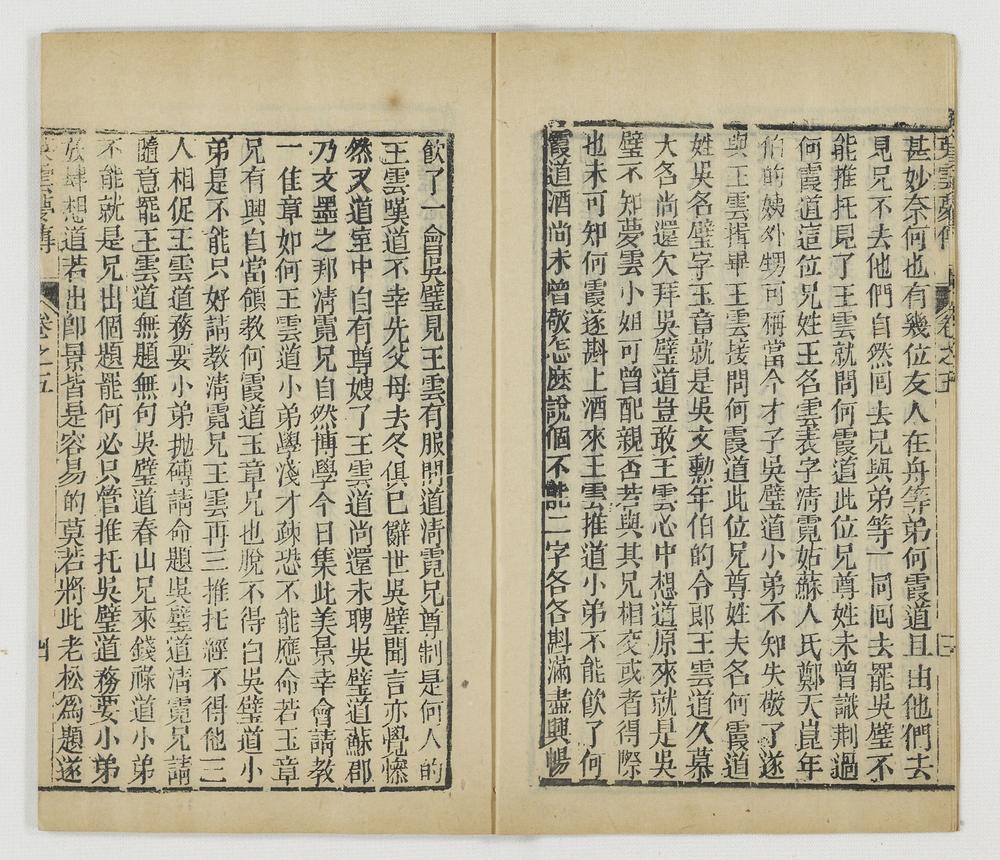 英雲夢傳
卷之五
甚妙奈何也有幾位友人在舟等弟何霞道且由他們去
見兄不去他們自然囘去兄與弟等一同回去罷吳璧不
能推托見了王雲就問何霞道此位兄尊姓未曾識荆過
何霞道這位兄姓王名雲表字清霓姑蘇人氏鄭天崑年
伯的姨外甥可稱當今才子吳璧道小弟不知失敬了遂
與王雲揖畢王雲接問何霞道此位兄尊姓大名何霞道
姓吳名璧字玉章就是吳文勲年伯的令郎王雲道久慕
大名尚還欠拜吳璧道豈敢王雲心中想道原來就是吳
璧不知夢雲小姐可曾配親否若與其兄相交或者得際
也未可知何霞遂斟上酒來王雲推道小弟不能飲了何
霞道酒尚未曾敬怎麽說個不能二字各各斟滿盡興暢
飲了一會吳璧見王雲有服問道清霓兄尊制是何人的
王雲嘆道不幸先父母去冬俱已辭世吳璧聞言亦覺慘
然又道室中自有尊嫂了王雲道尚還未聘吳璧道蘇郡
乃文墨之邦清霓兄自然博學今日集此美景幸會請教
一佳章如何王雲道小弟學淺才疎恐不能應命若玉章
兄有興自當領教何霞道玉章兄也脫不得白吳璧道小
弟是不能只好請教清霓兄王雲再三推托經不得他三
人相促王雲道務要小弟抛磚請命題吳璧道清霓兄請
隨意罷王雲道無題無句吳璧道春山兄來錢祿道小弟
不能就是兄出個題罷何必只管推托吳璧道務要小弟
放肆想道若出卽景皆是容易的莫若將此老松爲題遂
英雲夢傳
卷之五
四